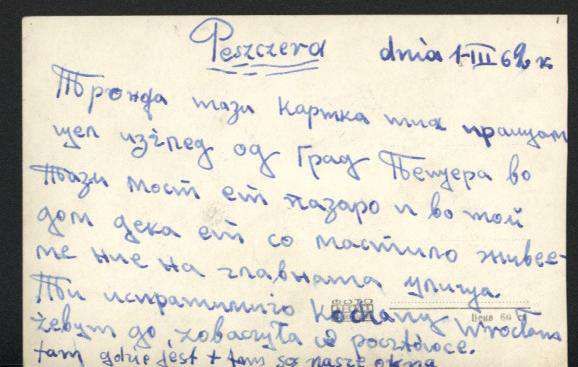 Peszczera dnia 1-III 62 r.
тази картка ти пращам
изглед од Град Пещера во
тази мост ет пазаро и во той
дом дека ет со мастило живее-
ме ние на главната улица.
Ти испратими Kochany Wrocław
żebym go zobaczyła w pocztówce.
tam gdzie jest + tam są nasze okna
Цена 60 ст